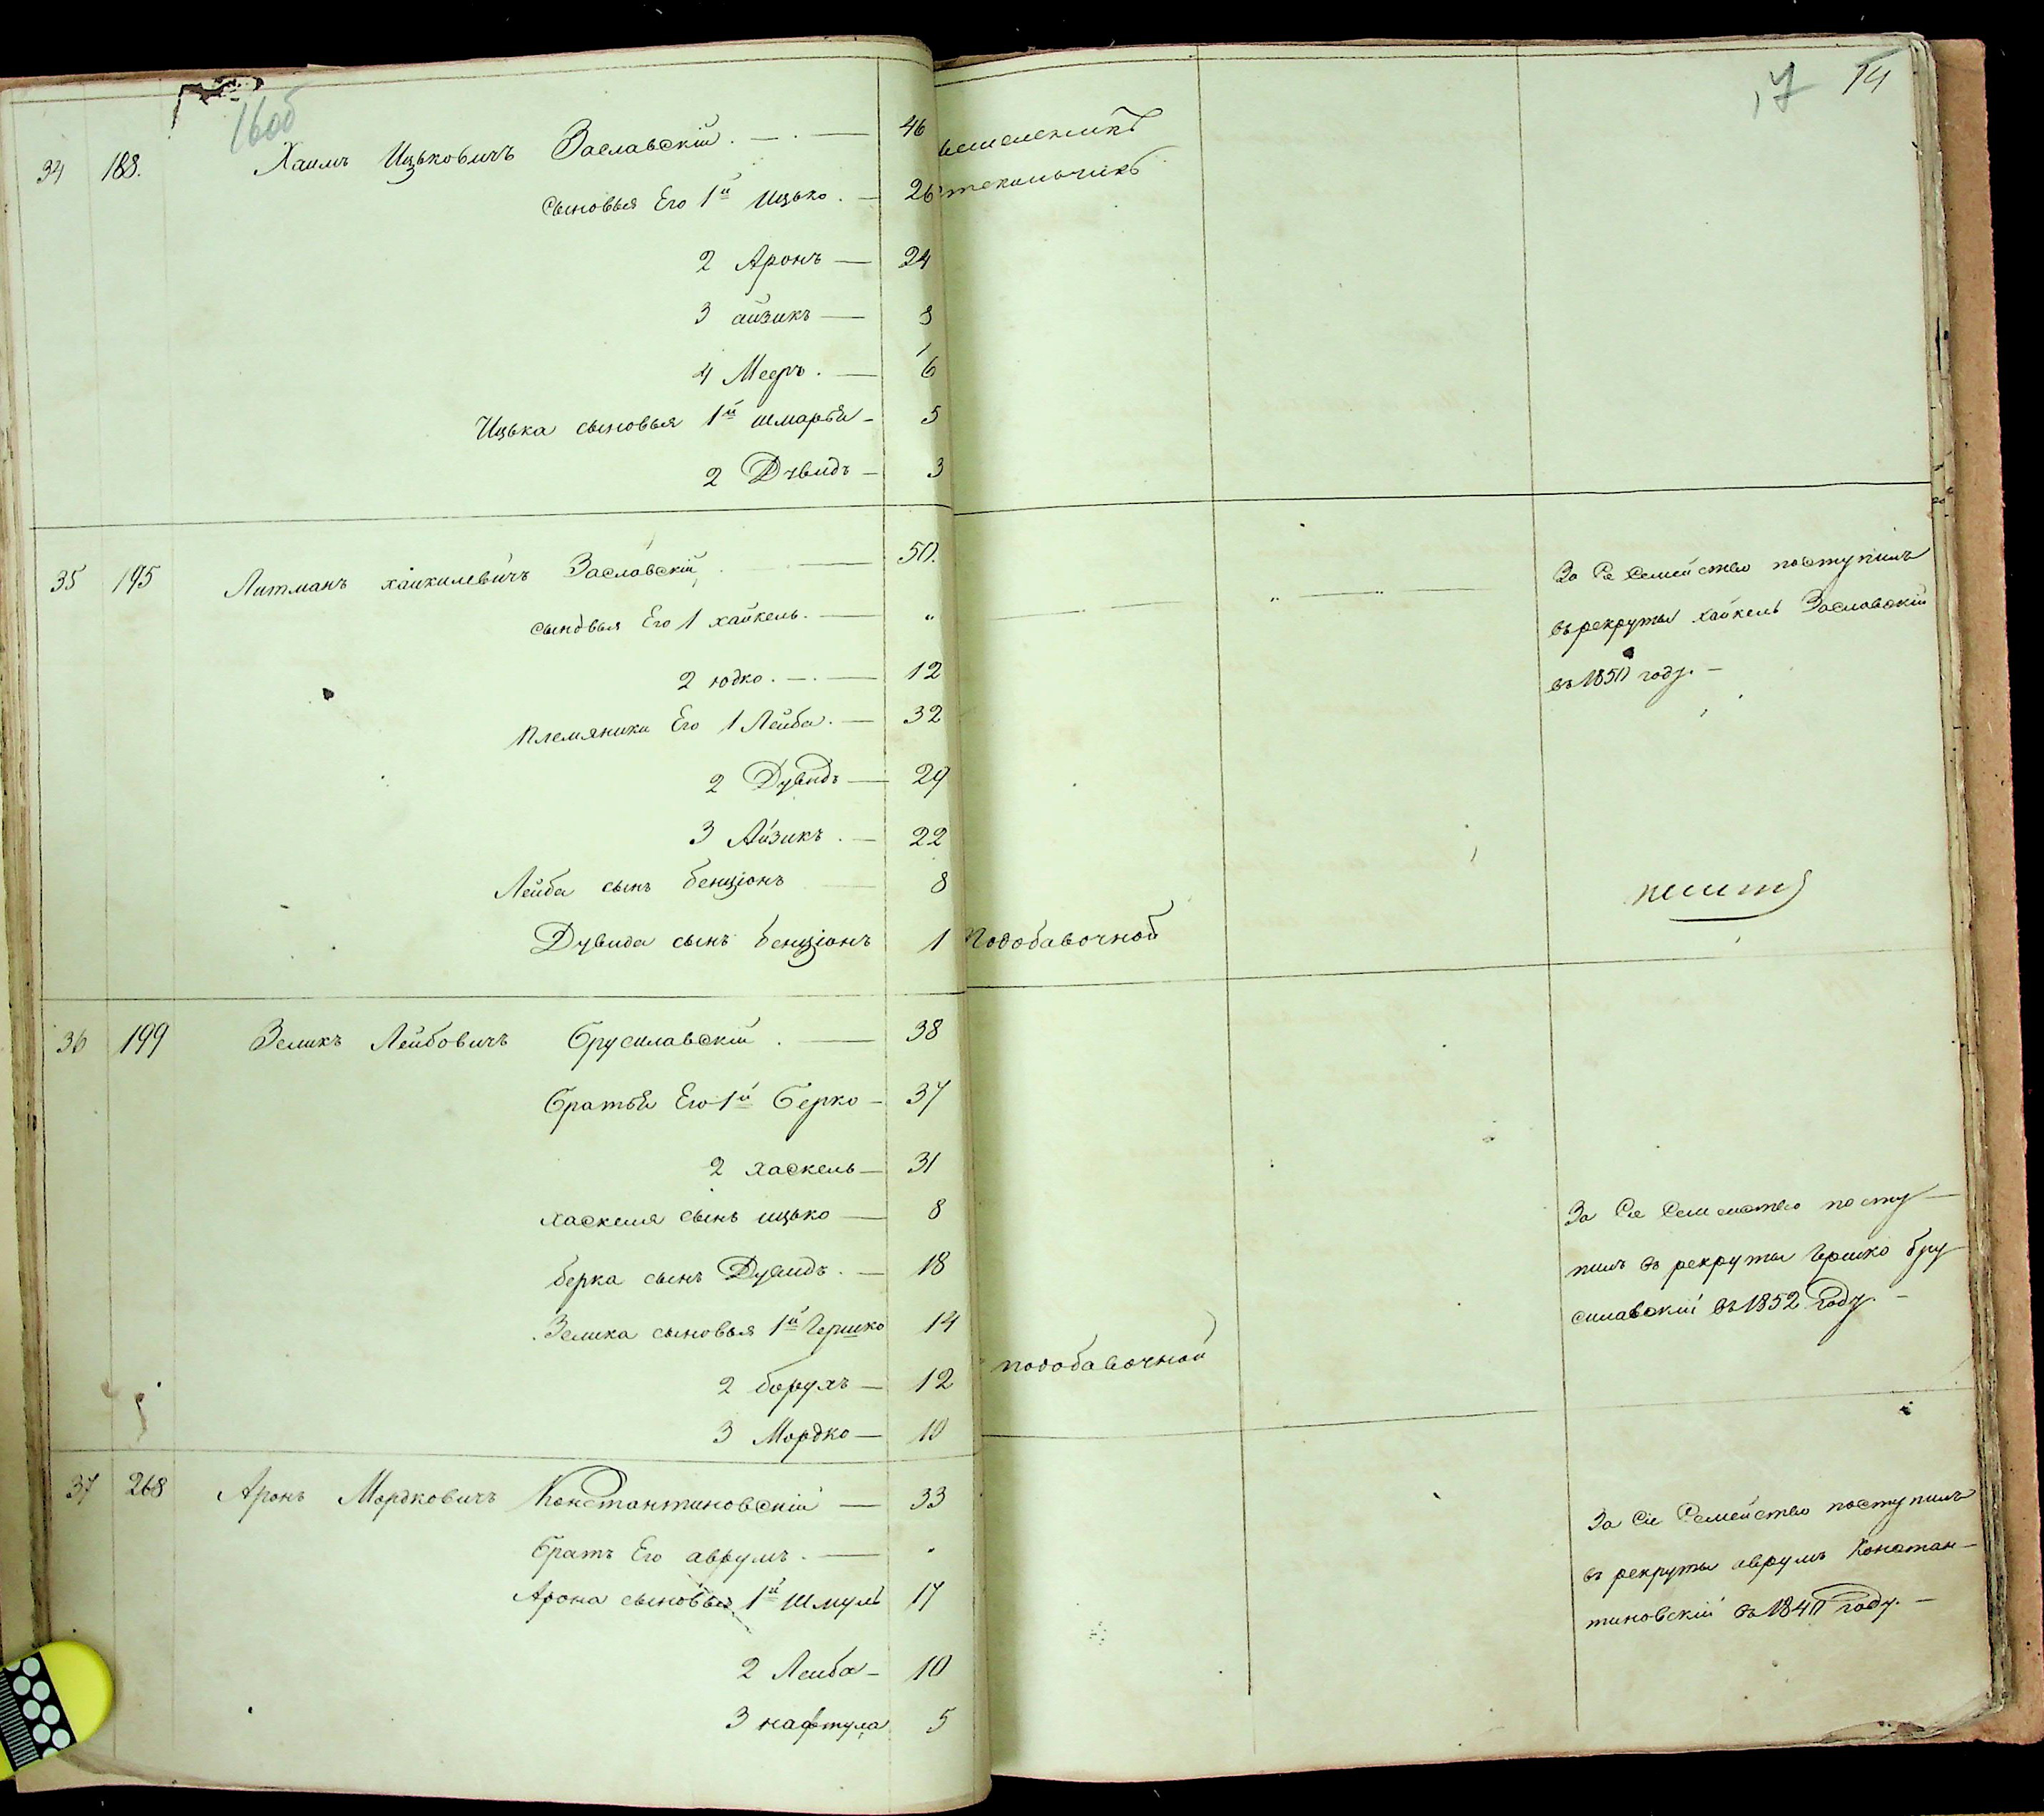 16об
17 14
34 188. Хаимъ Ицьковичъ Заславскій. — 46
Сыновья Его 1й Ицько. — 26 стекольчикъ
2 Аронъ — 24
3 айзикъ — 8
4 Мееръ. — 6
Ицька сыновья 1й шмарья — 5
2 Дувидъ — 3
35 195 Литманъ хайкилевичъ Заславскій — 50.
сыновья Его 1 хайкель. — „
2 юдко. — 12
племяники Его 1 Лейба. — 32
2 Дувидъ — 29
3 Айзикъ. — 22
Лейба сынъ бенціонъ — 8
Дувида сынъ бенціонъ 1 Подобавочной
За Се Семейство поступилъ
въ рекруты хайкель Заславскій
въ 1850 году. —
36 199 Зеликъ Лейбовичъ Брусилавскій. — 38
Братья Его 1й Берко — 37
2 хаскель — 31
хаскеля сынъ ицько — 8
берка сынъ Дувидъ. — 18
Зелика сыновья 1й Гершко 14
2 борухъ — 12 подобавочной
3 Мордко — 10
За Сіе Семейство посту-
пилъ въ рекруты Гершко бру
силавскій въ 1852 Году. —
37 268 Аронъ Мордковичъ Константиновскій — 33
Братъ Его аврумъ. — „
Арона сыновья 1й Шмуль 17
2 Лейба — 10
3 нафтула 5
За Сіе Семейство поступилъ
въ рекруты аврумъ Констан-
тиновскій въ 1840 году. —